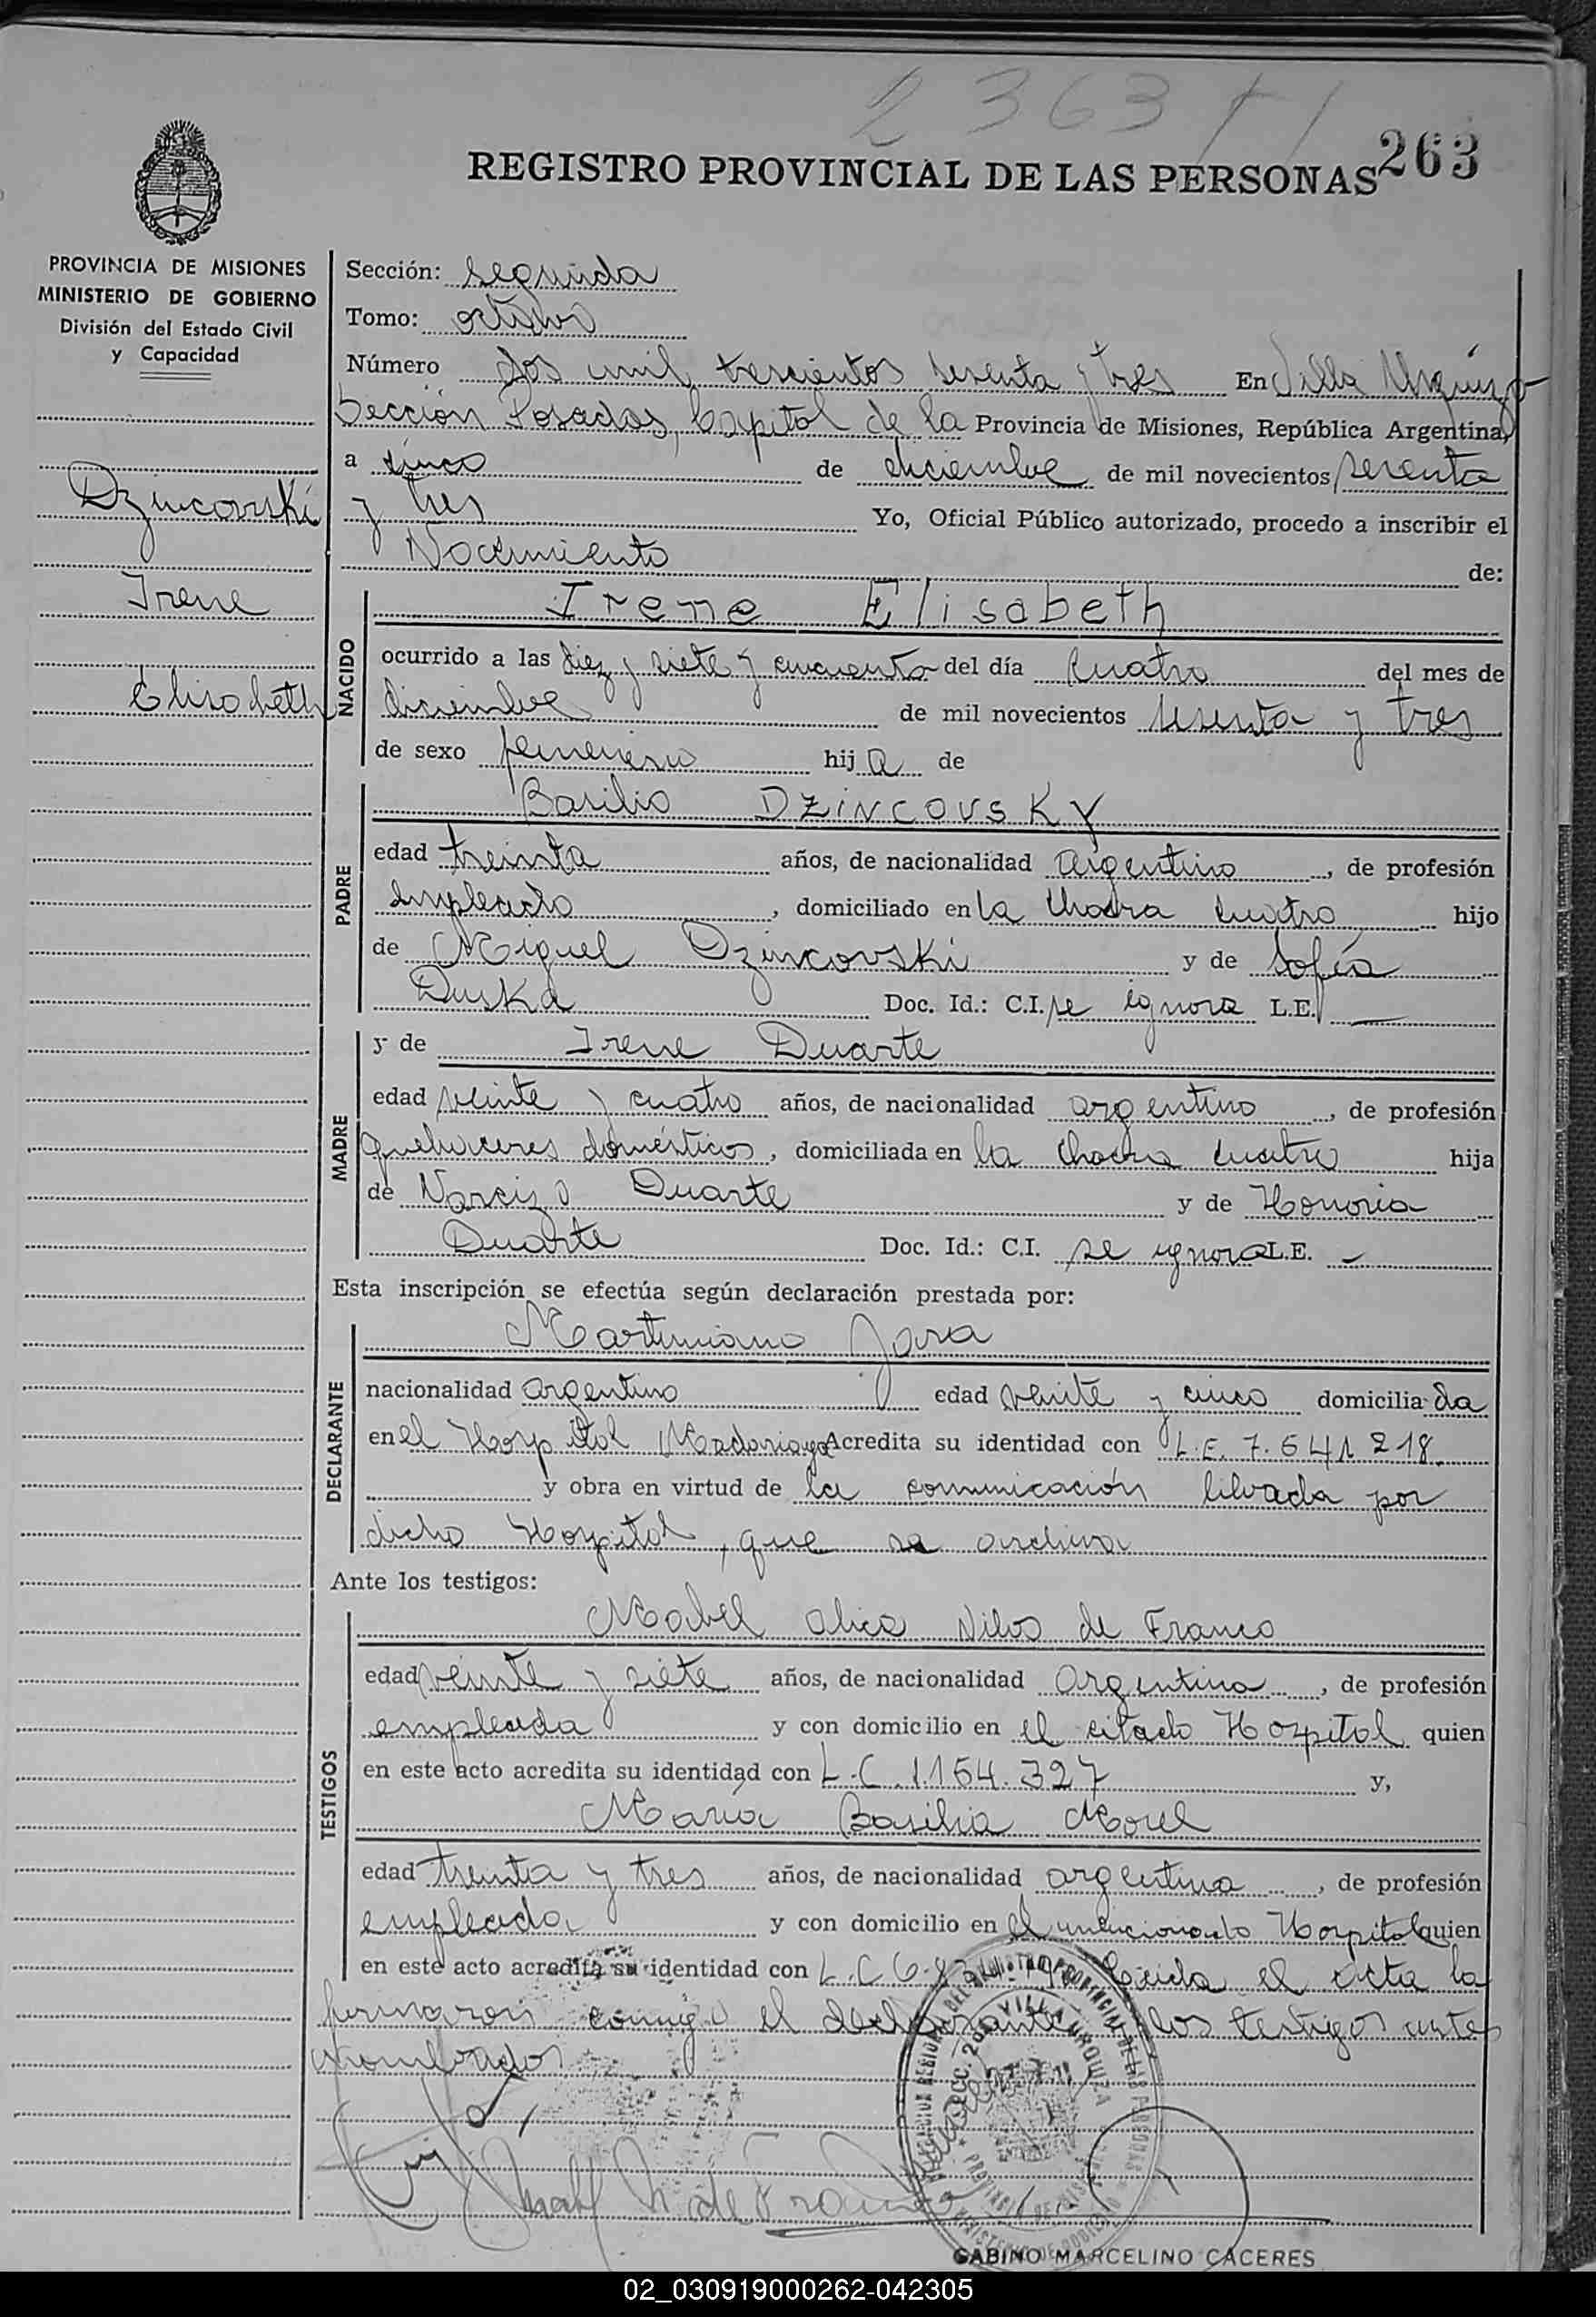 2363
263
REGISTRO PROVINCIAL DE LAS PERSONAS
PROVINCIA DE MISIONES
MINISTERIO DE GOBIERNO
División del Estado Civil
y Capacidad
Dzincovski
Irene
Elisabeth
Sección: segunda
Tomo: octavo
Número dos mil trescientos sesenta y tres En Villa Urquiza
Sección Posadas, Capital de la Provincia de Misiones, República Argentina,
a cinco de diciembre de mil novecientos sesenta
y tres Yo, Oficial Público autorizado, procedo a inscribir el
Nacimiento de:
NACIDO
Irene Elisabeth
ocurrido a las diez y siete y cincuenta del día cuatro del mes de
diciembre de mil novecientos sesenta y tres
de sexo femenino hija de
PADRE
Basilio DZINCOVSKY
edad treinta años, de nacionalidad argentino, de profesión
empleado, domiciliado en la chacra cuatro hijo
de Miguel Dzincovski y de Sofía
Duska Doc. Id.: C.I. se ignora L.E. —
MADRE
y de Irene Duarte
edad veinte y cuatro años, de nacionalidad argentina, de profesión
quehaceres domésticos, domiciliada en la chacra cuatro hija
de Narcizo Duarte y de Honoria
Duarte Doc. Id.: C.I. se ignora L.E. —
Esta inscripción se efectúa según declaración prestada por:
DECLARANTE
Martiniano Jara
nacionalidad argentino edad veinte y cinco domiciliada
en el Hospital Madariaga Acredita su identidad con L.E. 7.541.218
y obra en virtud de la comunicación librada por
dicho Hospital, que se archiva
Ante los testigos:
TESTIGOS
Mabel Alica de Franco
edad veinte y siete años, de nacionalidad argentina, de profesión
empleada y con domicilio en el citado Hospital quien
en este acto acredita su identidad con L.C. 1.154.327 y,
María Basilia Morel
edad treinta y tres años, de nacionalidad argentina, de profesión
empleada y con domicilio en el mencionado Hospital quien
en este acto acredita su identidad con L.C. Leida el acta la
firmaron conmigo el declarante los testigos antes
nombrados
SECC. 2da. VILLA URQUIZA
GABINO MARCELINO CACERES
02_030919000262-042305